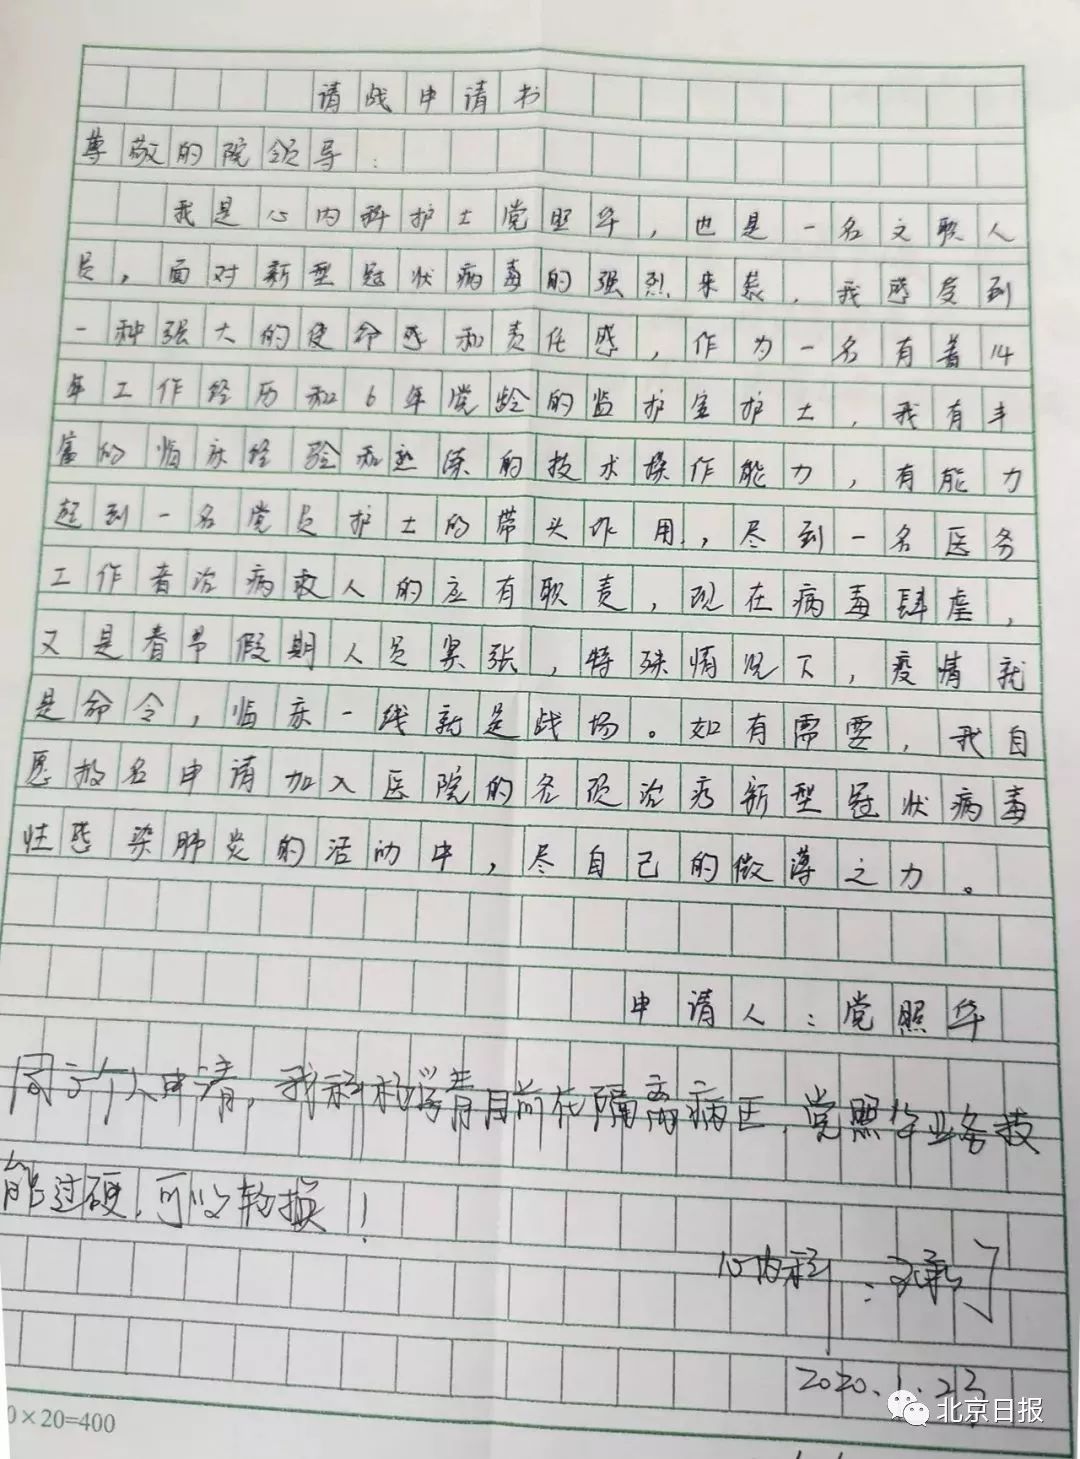 请战申请书
尊敬的院领导：
我是心内科护士党照华，也是一名文职人
员，面对新型冠状病毒的强烈来袭，我感受到
一种强大的使命感和责任感，作为一名有着14
年工作经历和6年党龄的监护室护士，我有丰
富的临床经验和熟练的技术操作能力，有能力
起到一名党员护士的带头作用，尽到一名医务
工作者治病救人的应有职责，现在病毒肆虐，
又是春节假期人员紧张，特殊情况下，疫情就
是命令，临床一线就是战场。如有需要，我自
愿报名申请加入医院的各项治疗新型冠状病毒
性感染肺炎的活动中，尽自己的微薄之力。
申请人：党照华
同意个人申请，我科 目前在隔离病区，党照华业务技
能过硬，可以轮换！
心内科：
2020.1.23
北京日报
0×20=400